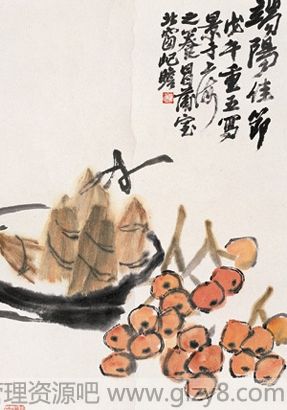 端陽佳節
戊午重五寫
景于上海
之養菖蘭室
北窗屺瞻
理资源吧 www.glzy8.com